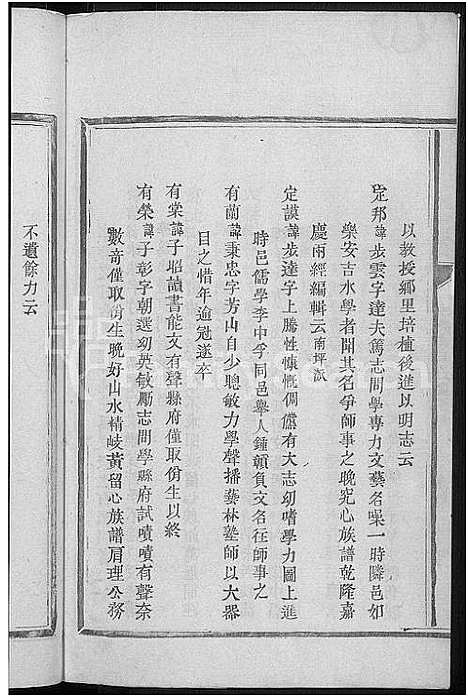 以教授鄉里培植後進以明志云
定邦諱步雲字達夫篤志問學專力文藝名噪一時隣邑如
樂安吉水學者聞其名爭師事之晚究心族譜乾隆嘉
慶兩經編輯云南坪派
定謨諱步達字上騰性慷慨倜儻有大志幼嗜學力圖上進
時邑儒學李中孚同邑舉人鍾頴負文名往師事之
有蘭諱秉忠字芳山自少聰敏力學聲播藝林塾師以大器
目之惜年逾冠遂卒
有棠諱子昭讀書能文有聲縣府僅取佾生以終
有榮諱子彰字朝選幼英敏勵志問學縣府試嘖嘖有聲奈
數奇僅取佾生晚好山水精岐黃留心族譜肩理公務
不遺餘力云